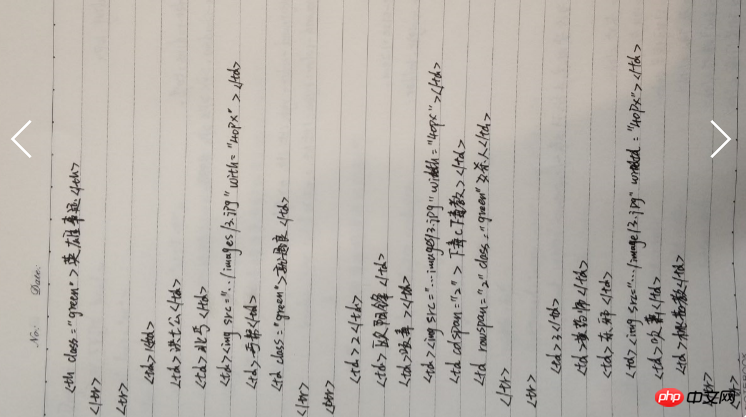 No:
Date:
<th class="green">英雄事迹</th>
</tr>
<tr>
<td>1</td>
<td>洪七公</td>
<td>北丐</td>
<td><img src="../images/3.jpg" with="40px"></td>
<td>丐帮</td>
<td class="green"></td>
</tr>
<tr>
<td>2</td>
<td>欧阳锋</td>
<td></td>
<td><img src="...images/3.jpg" width="40px"></td>
<td colspan="2">下毒</td>
<td rowspan="2" class="green">杀人</td>
</tr>
<tr>
<td>3</td>
<td>黄药师</td>
<td>东邪</td>
<td><img src=".../image/3.jpg" "40px"></td>
<td></td>
<td></td>
</tr>
<tr>
php 中文网